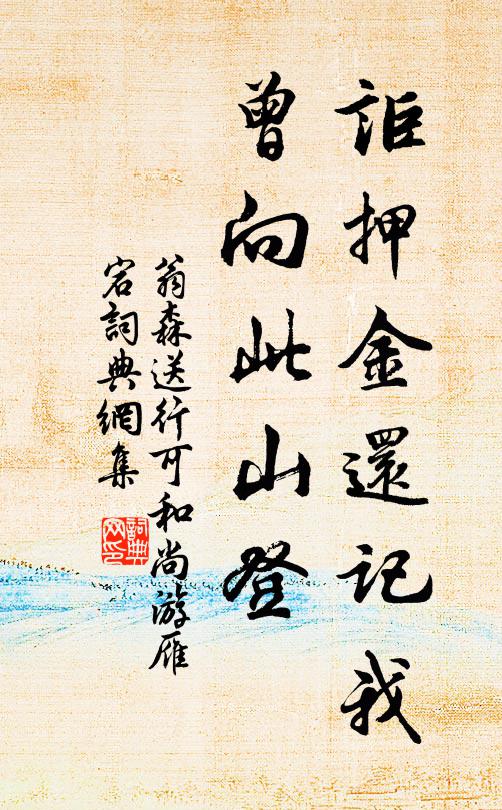 詎押金還記我
曾向此山登
翁森送行可和尚游雁
宕詞典網集
詞典
网印